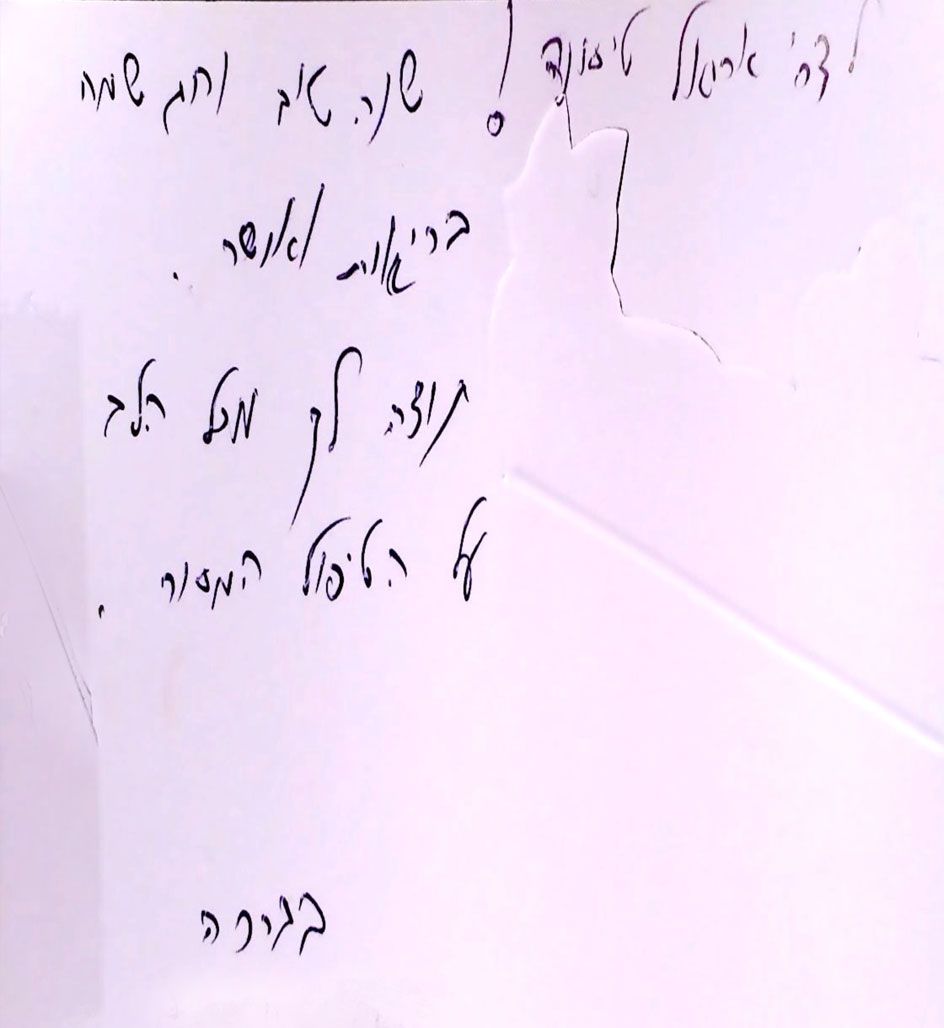 לדר' אריאל !
שנה טוב וחג שמח
בריאות ואושר .
תודה לך מכל הלב
על הטיפול המסור .